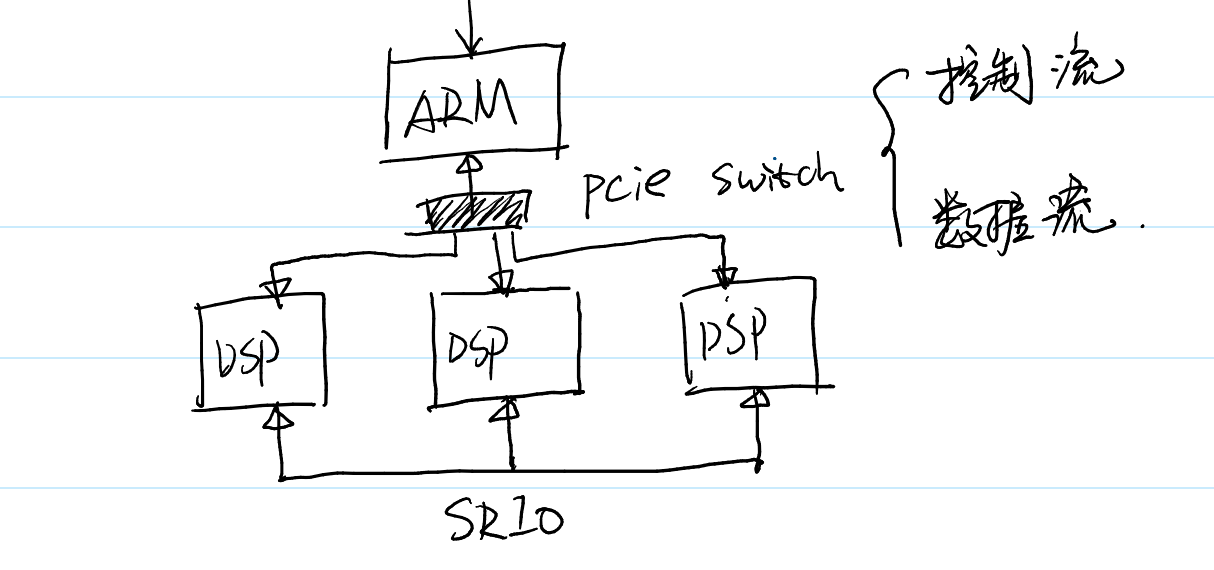 ARM
控制流
pcie switch
数据流.
DSP
DSP
DSP
SRIO